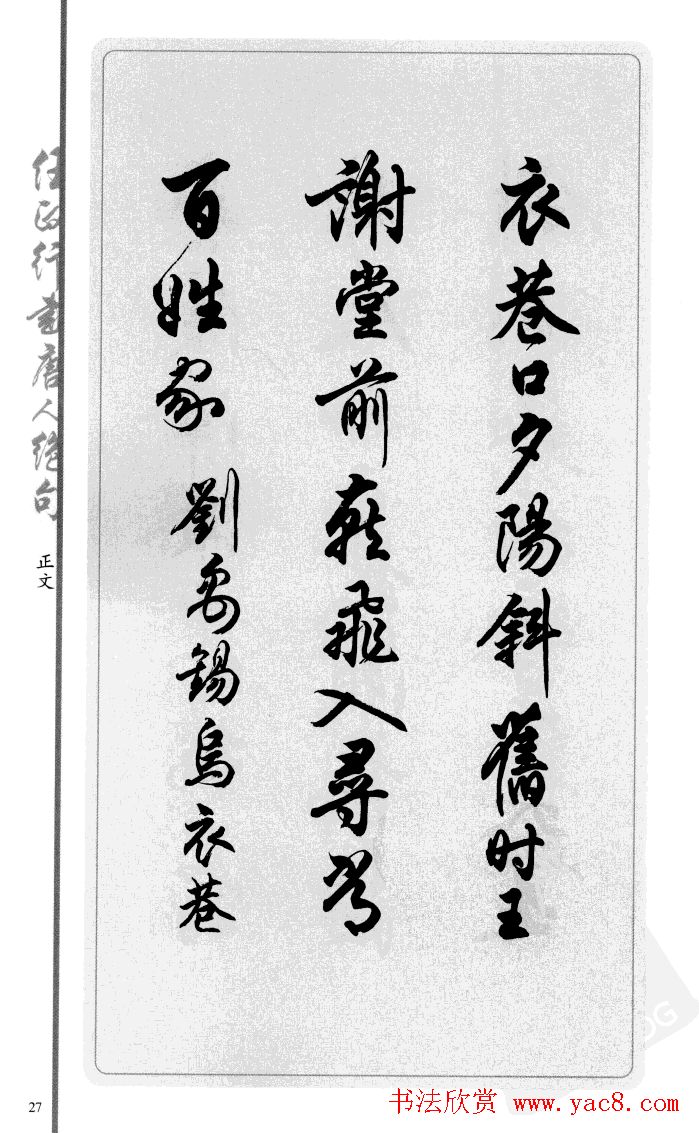 衣巷口夕陽斜舊时王
謝堂前燕飛入尋常
百姓家 劉禹錫烏衣巷
任政行書唐人绝句
正文
27
书法欣赏 www.yac8.com